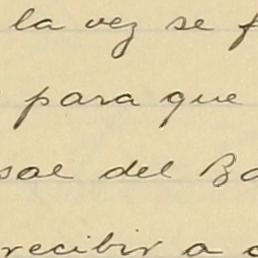 la vez se f
para que
sal del Ba
recibir a